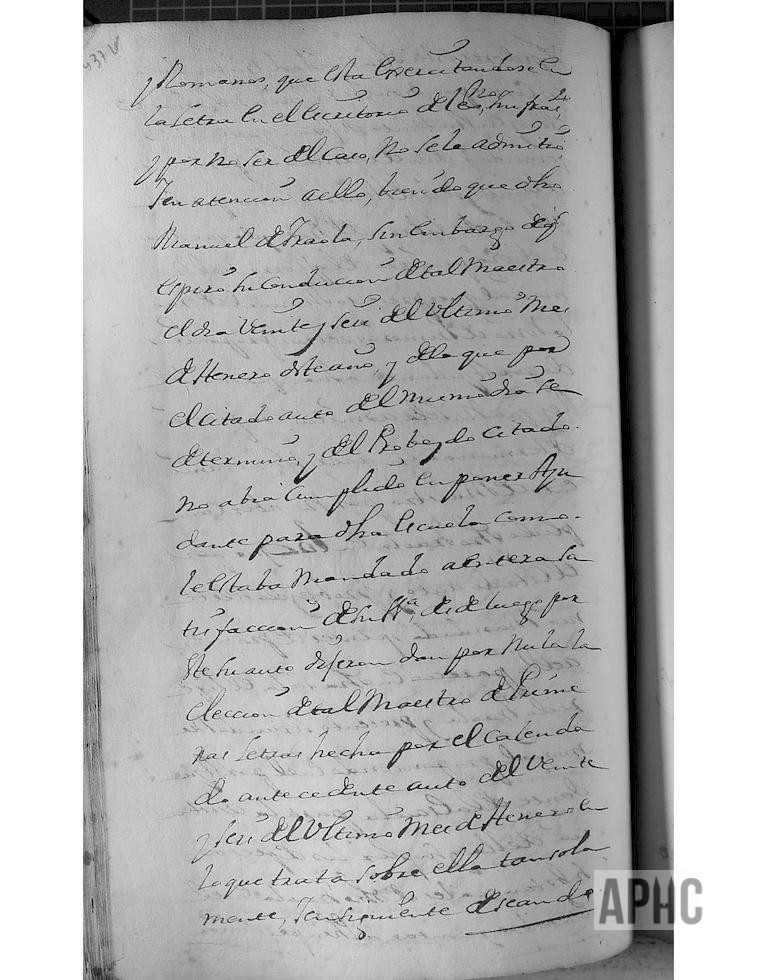 437 v
y Romanos, que esta exercitandose en
la Letra en el escritorio del es.no infrasto
y por no ser del caso, no se la admitio,
Y en atencion a ello, biendo que dho
Manuel de Yraola, sin embargo de q
espiro su conducion de tal Maestro
el dia Veinte y seis del Ultimo Mes
de Henero de este año, y de lo que por
el citado auto del mismo dia se
determino, y del Probeydo citado
no abia cumplido en poner Ayu
dante para dha escuela como
le estaba mandado a entera sa
tisfaccion de su Sª, desde luego por
este su auto dijeron dan por nula la
eleccion de tal Maestro de Prime
ras Letras hecha por el calenda
do antecedente auto del Veinte
y seis del Ultimo Mes de Henero en
lo que trata sobre ella tan sola
mente, y en siguiente deseando
APHC